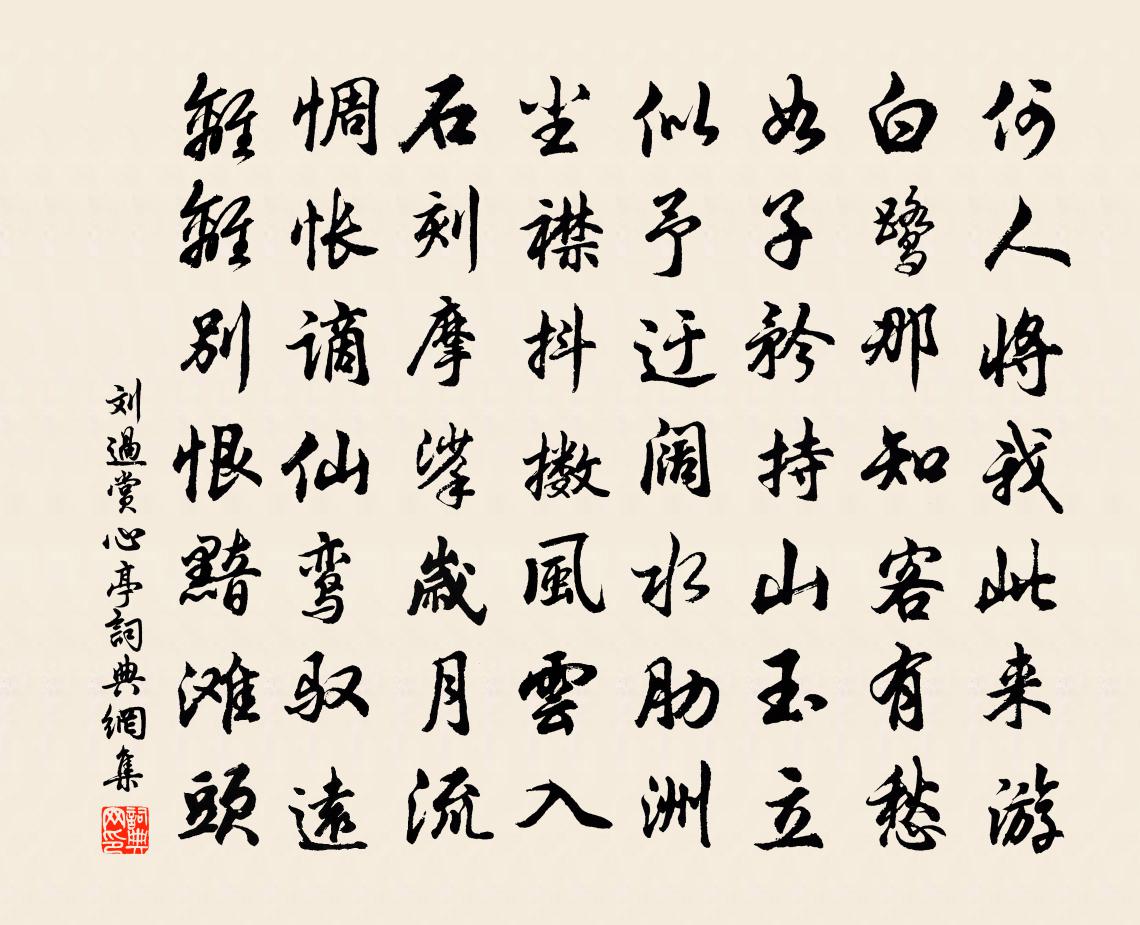 何人将我此来游
白鹭那知客有愁
如子矜持山玉立
似予迂阔水肋洲
尘襟抖擞風雲入
石刻摩挲歲月流
惆怅谪仙鸾驭遠
離離别恨黯滩頭
刘過赏心亭詞典網集
詞典网印